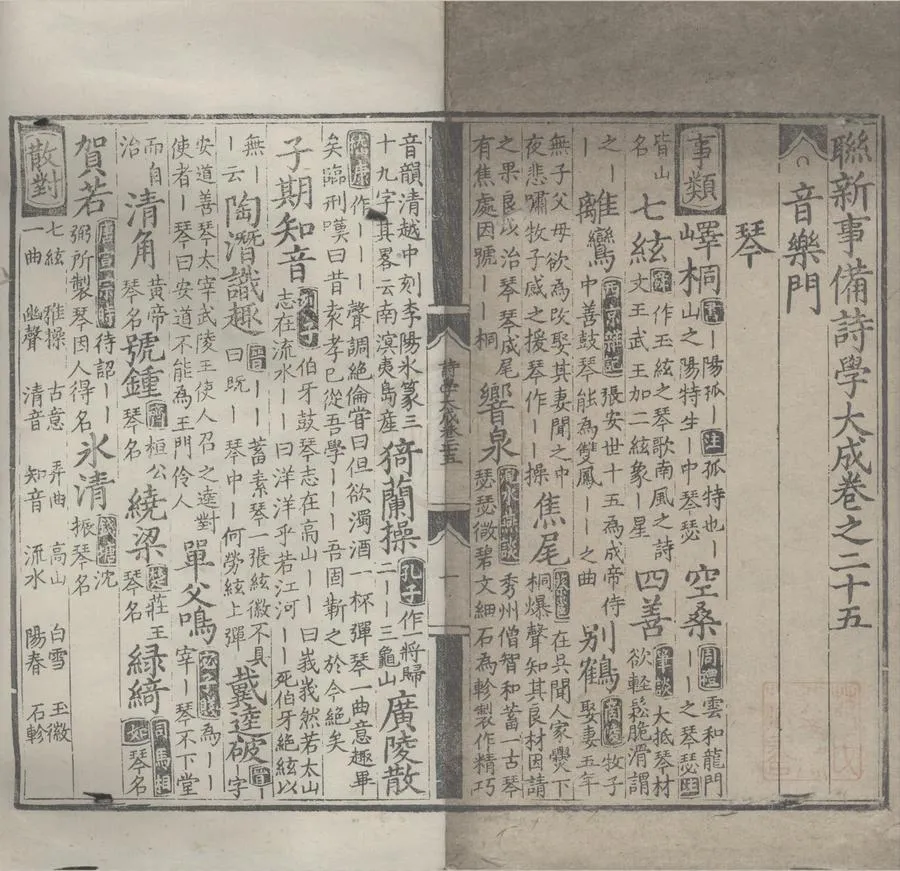 聯新事備詩學大成卷之二十五
音樂門
琴
事類 嶧桐 書 ｜陽孤｜ 注 孤特也｜山之陽特生｜中琴瑟 空桑 周禮 雲和龍門｜｜之琴瑟 注
皆山名 七絃 舜作五絃之琴歌南風之詩文王武王加二絃象｜星 四善 筆談 大抵琴材欲輕鬆脆滑謂
之｜ 離鸞 西京雜記 張安世十五為成帝侍中善鼓琴能為雙鳳｜｜之曲 別鶴 商陵 牧子娶妻五年
無子父母欲為改娶其妻聞之中夜悲嘯牧子感之援琴作｜｜操 焦尾 在吳聞人家爨下桐爆聲知其良材因請
之果良以治琴琴成尾有焦處因號｜｜桐 響泉 秀州僧智和蓄一古琴瑟瑟微碧文細石為軫製作精巧
音韻清越中刻李陽氷篆三十九字其畧云南溟夷島産 猗蘭操 孔子 作一將歸二｜｜三龜山 廣陵散
嵆康 作｜｜｜聲調絶倫甞曰但欲濁酒一杯彈琴一曲意趣畢矣臨刑嘆曰昔袁孝已從吾學｜｜｜吾固蘄之於今絶矣
子期知音 列子 伯牙鼓琴志在高山｜｜曰峩峩然若太山志在流水｜｜曰洋洋乎若江河｜｜死伯牙絶絃以
無｜｜云 陶潛識趣 晉｜｜蓄素琴一張絃徽不具曰既｜｜琴中｜何勞絃上彈 戴逵破｜ 晉｜｜字
安道善琴太宰武陵王使人召之逵對使者｜｜琴曰安道不能為王門伶人 單父鳴｜ 宓子賤 為｜｜宰｜琴不下堂
而自治 清角 黄帝琴名 號鍾 齊桓公琴名 繞梁 楚莊王琴名 緑綺 司馬相如 琴名
賀若 待詔｜｜弼所製琴因人得名 氷清 錢塘沈振琴名
散對 七絃 雅操 古意 弄曲 高山 白雪 玉徽
一曲 幽聲 清音 知音 流水 陽春 石軫
詩學大成卷二十五
一